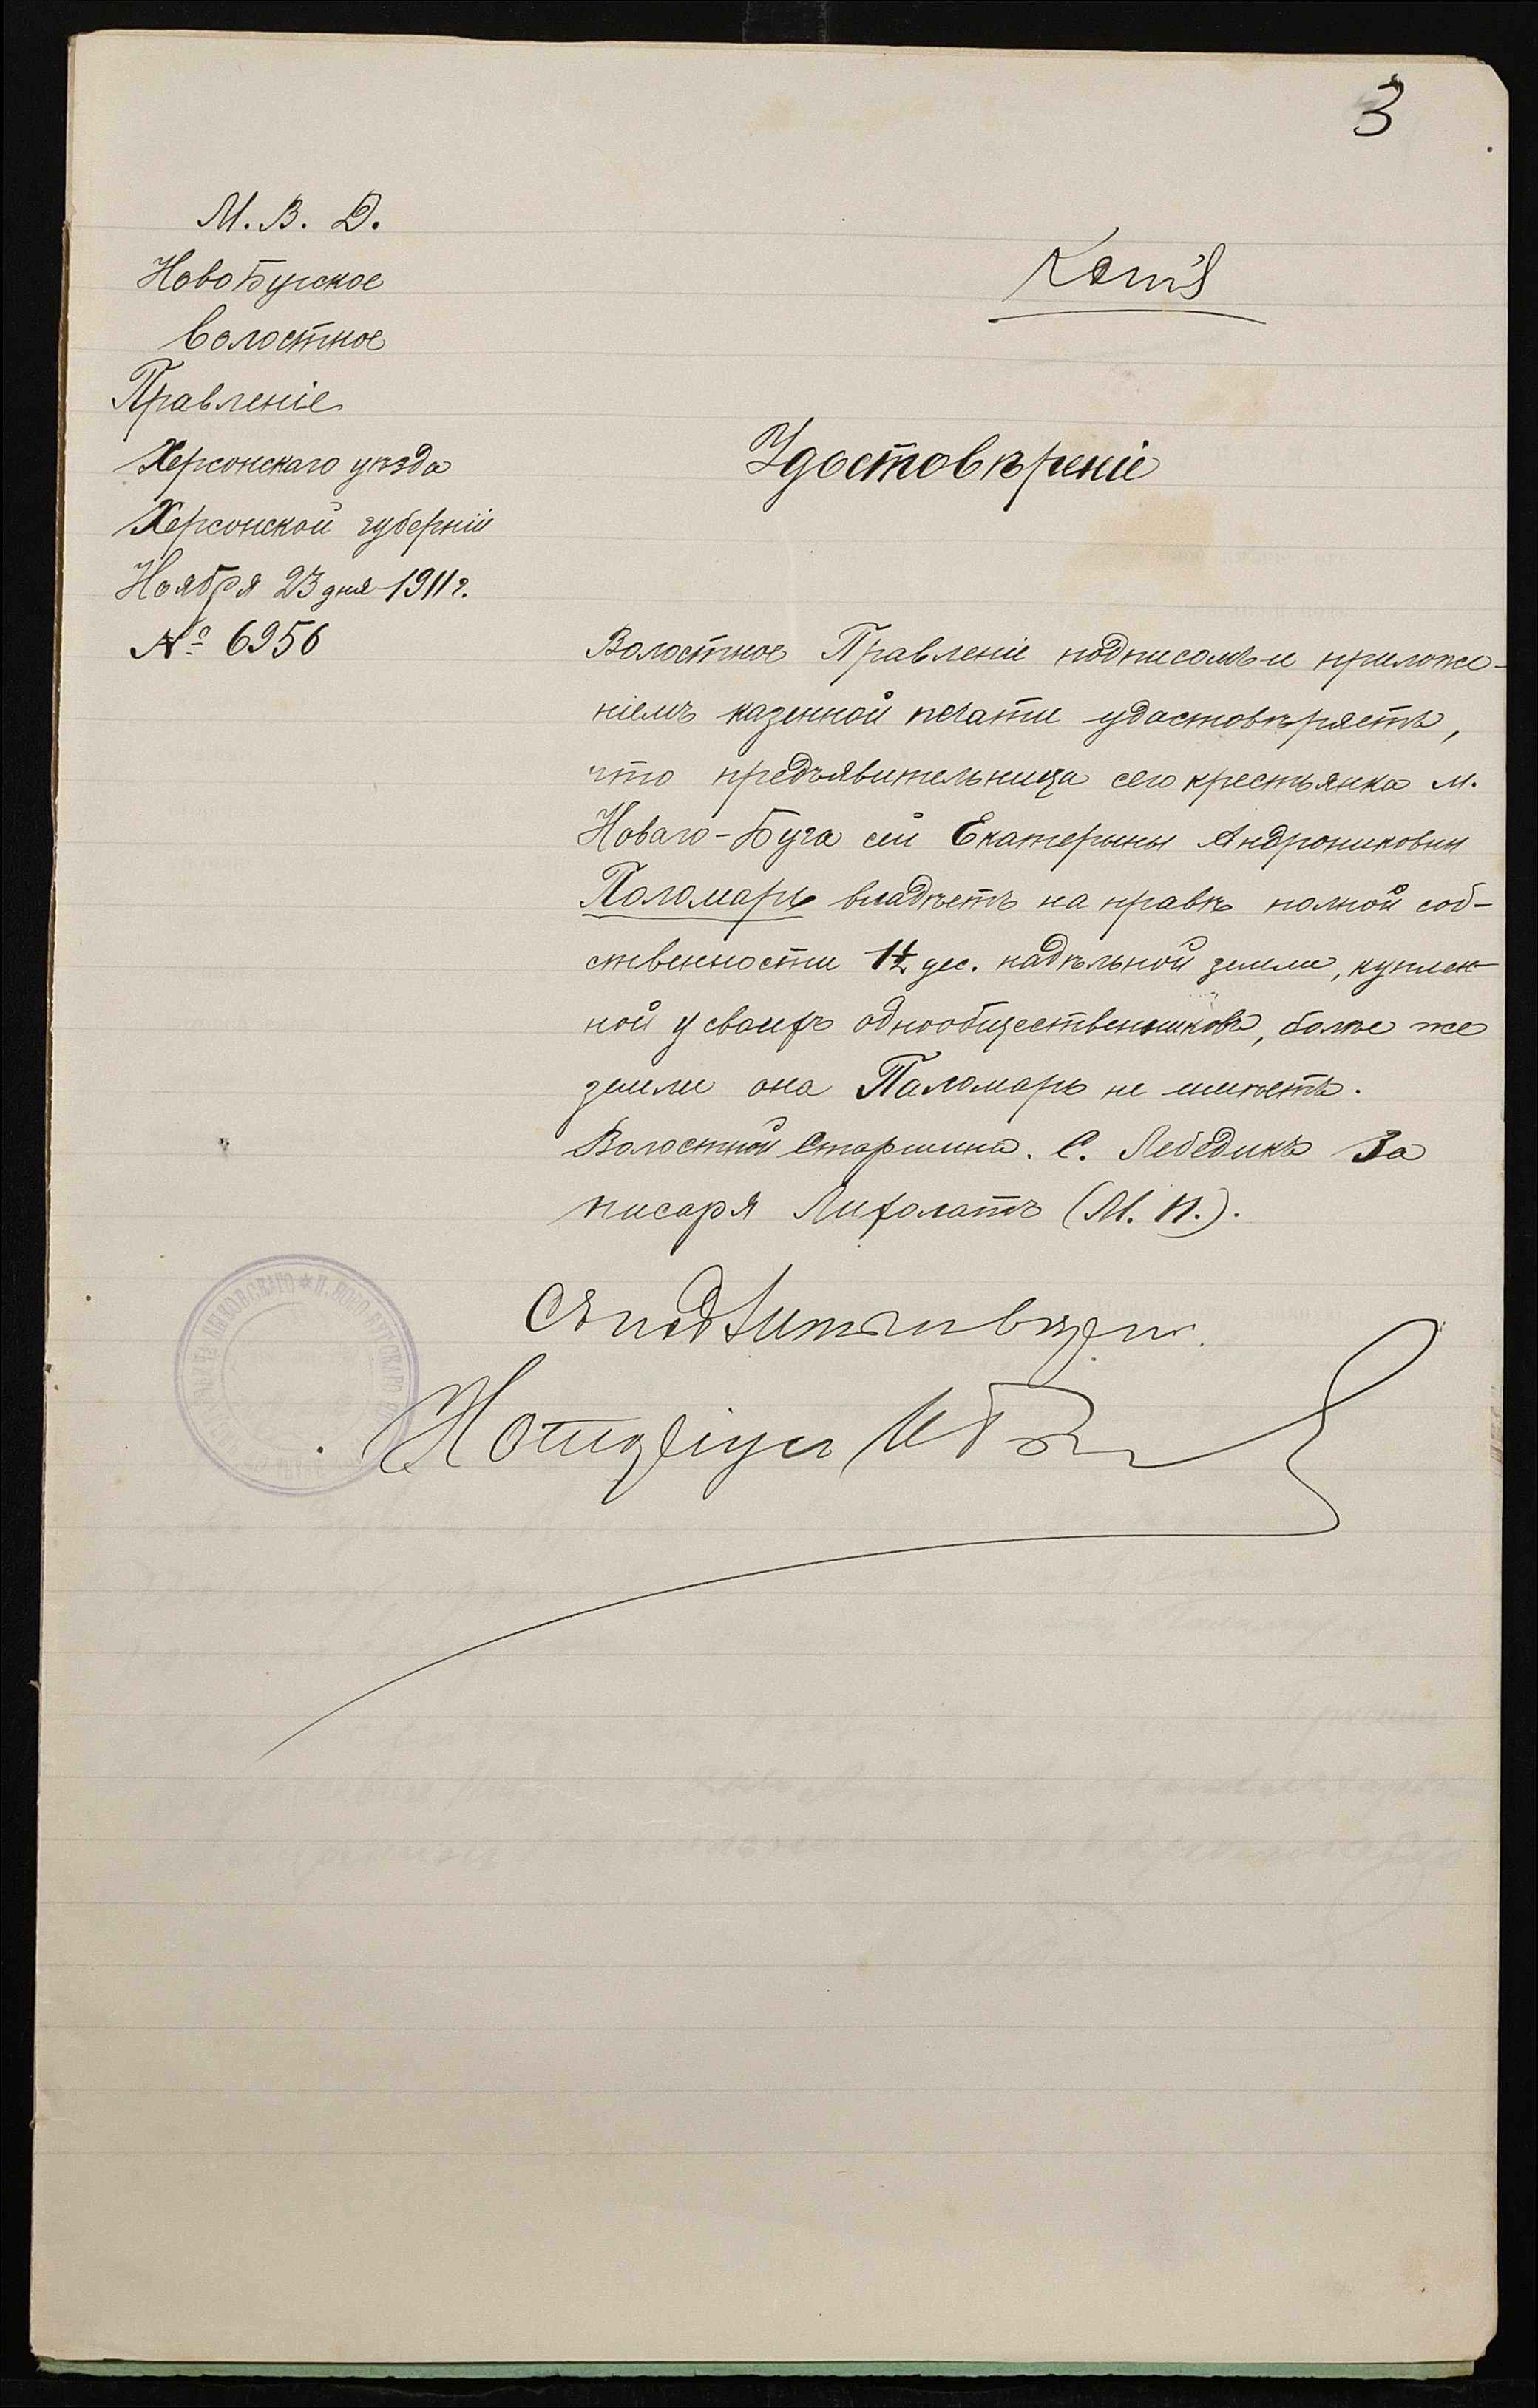 3
М. В. Д.
НовоБугское
Волостное
Правленіе
Херсонскаго уѣзда
Херсонской губерніи
Ноября 23 дня 1911 г.
№ 6956
Копія
Удостовѣреніе
Волостное Правленіе подписомъ и приложе-
ніемъ казенной печати удостовѣряетъ,
что предъявительница сего крестьянка м.
Новаго-Буга сей Екатерины Андрониковны
Паламарь владѣетъ на правѣ полной соб-
ственности 1½ дес. надѣльной земли, куплен-
ной у своихъ однообщественниковъ, болѣе же
земли она Паламарь не имѣетъ.
Волостной Старшина. С. Лебедикъ За
писаря Лихолатъ (М. П.).
Съ подлиннымъ вѣрно.
Нотаріусъ